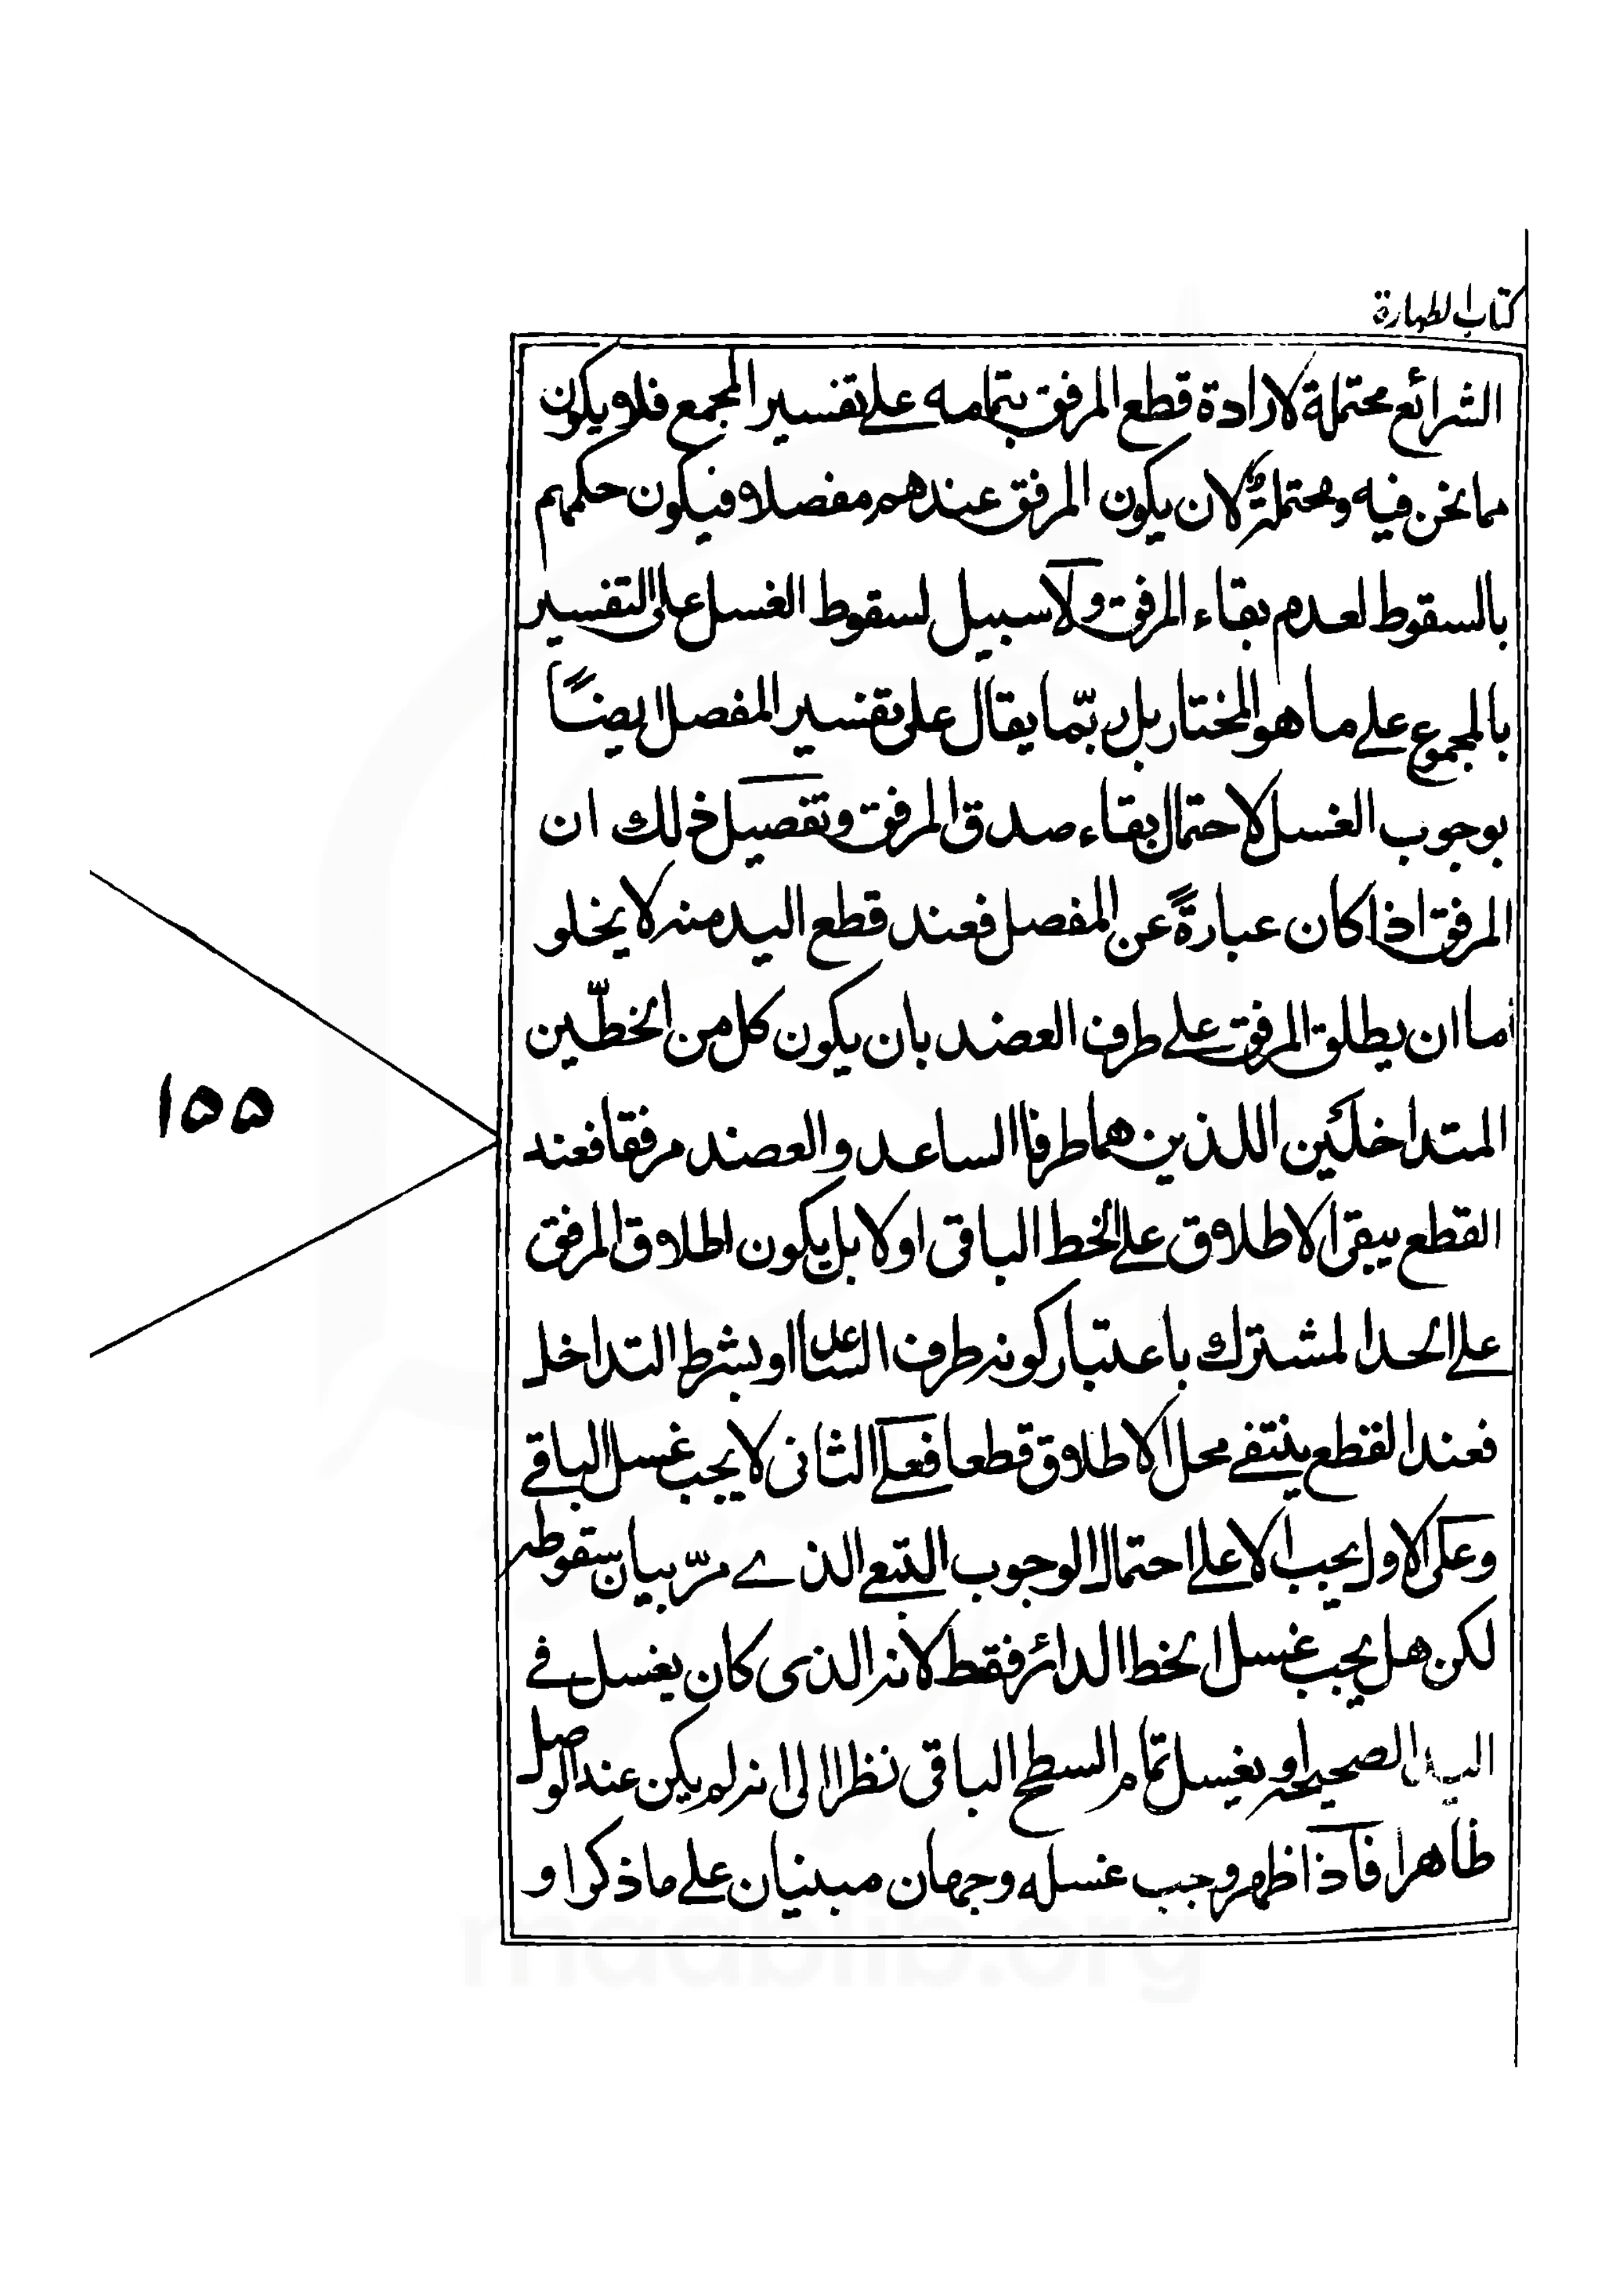 كتاب الطهارة
الشرائع محتملة لارادة قطع المرفق بتمامه على تفسير المجمع فلا يكون
مما نحن فيه ومحتملة لان يكون المرفق عندهم مفصلا فيكون حكمهم
بالسقوط لعدم بقاء المرفق ولا سبيل لسقوط الغسل على التفسير
بالمجموع على ما هو المختار بل ربّما يقال على تفسير المفصل ايضاً
بوجوب الغسل لاحتمال بقاء صدق المرفق وتفصيل ذلك ان
المرفق اذا كان عبارةً عن المفصل فعند قطع اليد منه لا يخلو
اما ان يطلق المرفق على طرف العضد بان يكون كل من الخطّين
المتداخلين اللذين هما طرفا الساعد والعضد مرفقا فعند
القطع يبقى الاطلاق على الخط الباقى او لا بل يكون اطلاق المرفق
على الحد المشترك باعتبار كونه طرف الساعد او بشرط التداخل
فعند القطع ينتفى محل الاطلاق قطعا فعلى الثانى لا يجب غسل الباقى
وعلى الاول يجب الا على احتمال الوجوب التبعى الذى مرّ بيان سقوطه
لكن هل يجب غسل الخط الدائر فقط لانه الذى كان يغسل فى
اليد الصحيحة او يغسل تمام السطح الباقى نظرا الى انه لم يكن عند الوصل
ظاهرا فاذا ظهر وجب غسله وجهان مبنيان على ما ذكرا و
۱۵۵
maablib.org